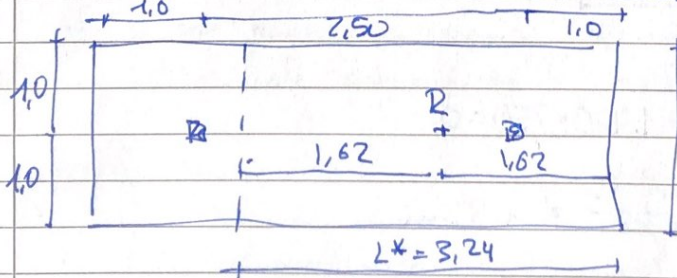 1,0 2,50 1,0
1,0
R
1,62 1,62
1,0
L* = 3,24